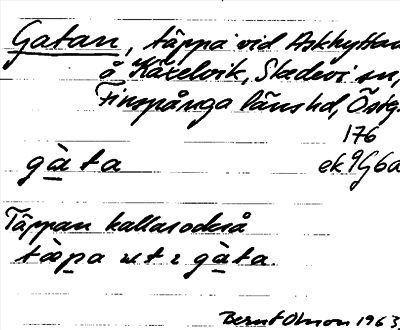 Gatan, täppa vid Askhyttan
å Kaxelvik, Skedevi sn,
Finspånga läns hd, Östg.
176
gàta ek 9G6a
Täppan kallas också
tòpa ut i gàta.
Bernt Olsson 1963.